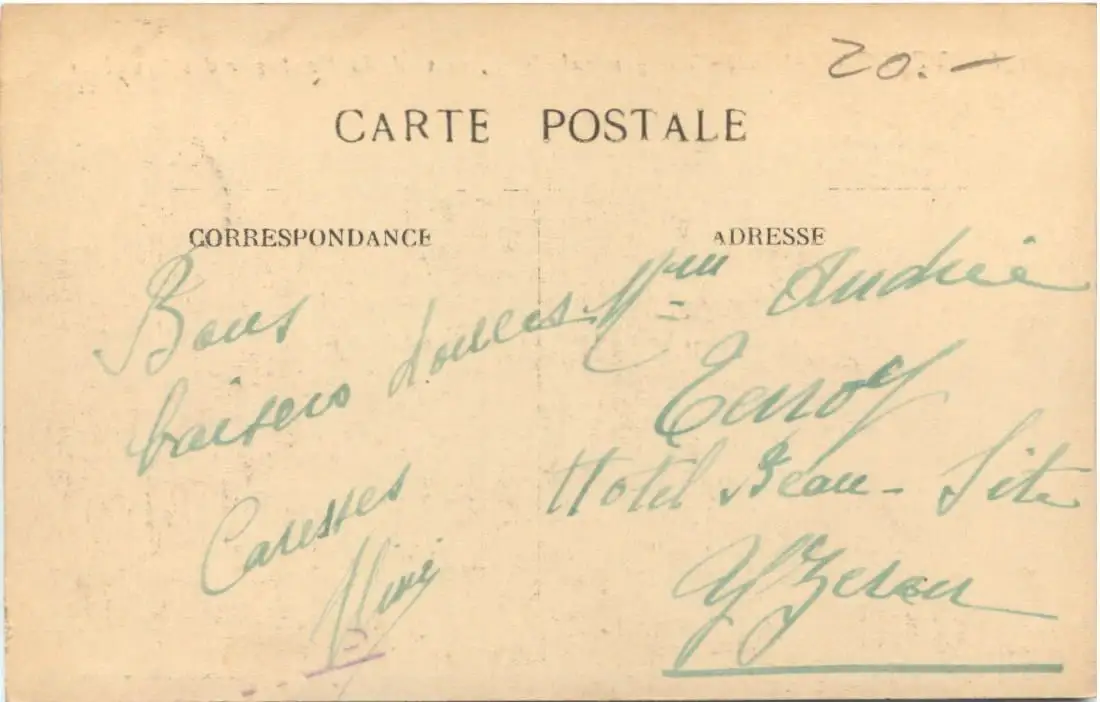 20.-
CARTE POSTALE
CORRESPONDANCE
Bons
baisers douces
Caresses
ADRESSE
Mme Andrée
Hotel Beau-Site
Yzeron